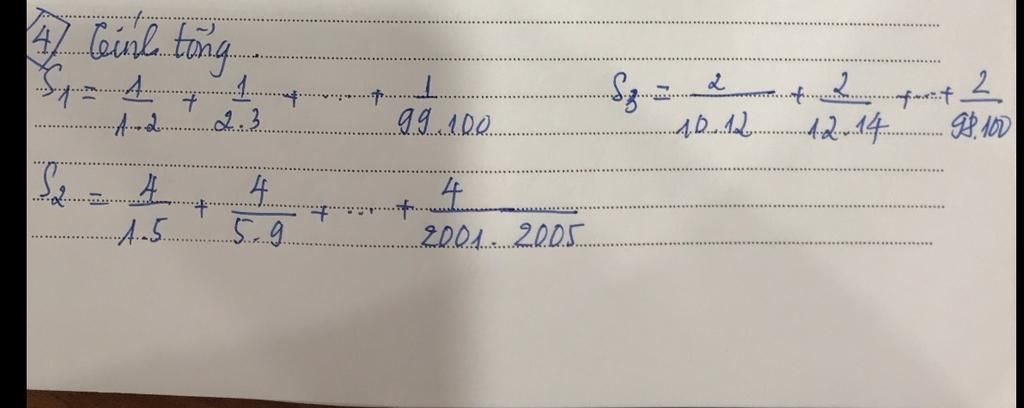 4) Tính tổng.
S₁ = 1/1.2 + 1/2.3 + ... + 1/99.100
S₃ = 2/10.12 + 2/12.14 + ... + 2/98.100
S₂ = 4/1.5 + 4/5.9 + ... + 4/2001.2005